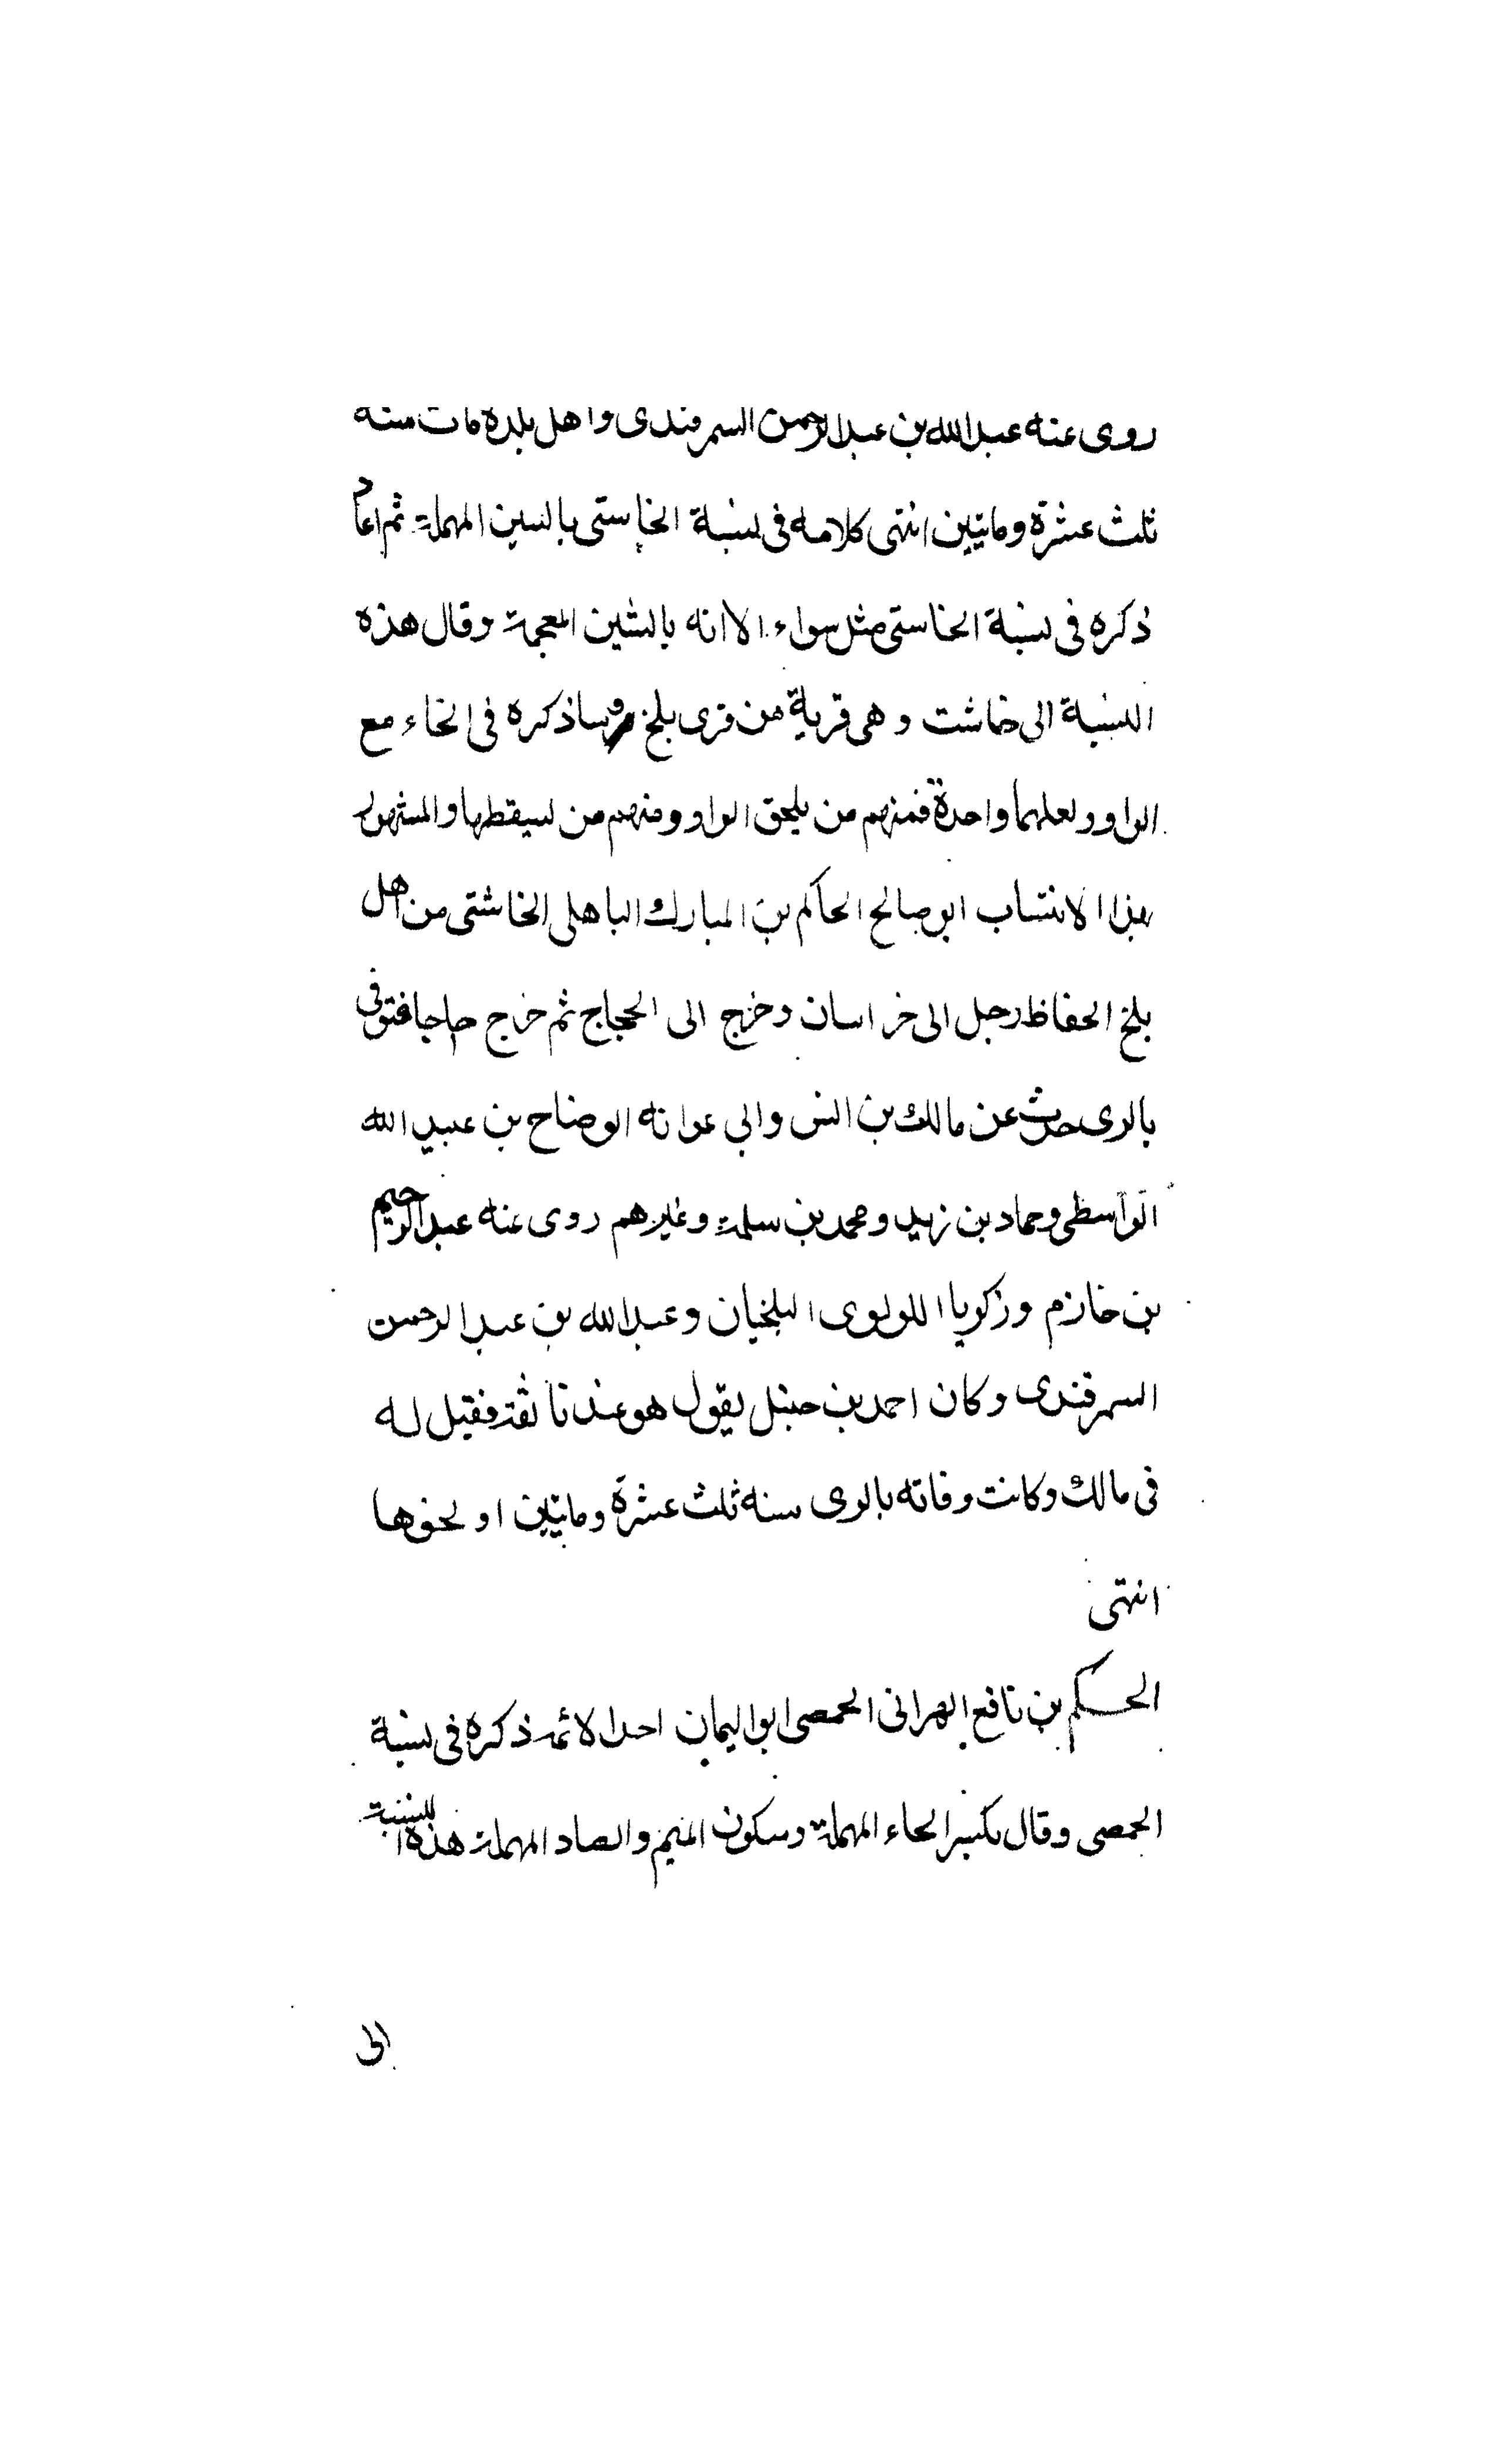 روى عنه عبد الله بن عبد الرحمن السمرقندى واهل بلده مات سنة
ثلث عشرة وماتين انتهى كلامه فى نسبة الخاستى بالسين المهملة ثم اعاد
ذكره فى نسبة الخاستى مثل سواء الا انه بالشين المعجمة وقال هذه
النسبة الى خاشت وهى قرية من قرى بلخ وساذكره فى الخاء مع
الواو ولعلهما واحدة فمنهم من يلحق الواو ومنهم من يسقطها والمشهور
بهذا الانتساب ابو صالح الحاكم بن المبارك الباهلى الخاشتى من اهل
بلخ الحفاظ رحل الى خراسان وخرج الى الحجاج ثم خرج حاجا فتوفى
بالرى حدث عن مالك بن انس وابي عوانه الوضاح بن عبيد الله
الواسطى وحماد بن زيد ومحمد بن سلمة وغيرهم روى عنه عبد الرحيم
بن خازم وزكريا اللولوى البلخيان وعبد الله بن عبد الرحمن
السمرقندى وكان احمد بن حنبل يقول هو عندنا ثقة فقيل له
فى مالك وكانت وفاته بالرى سنه ثلث عشرة وماتين او نحوها
انتهى
الحكم بن نافع البهرانى الحمصى ابو اليمان احد الائمة ذكره فى نسبة
الحمصى وقال بكسر الحاء المهملة وسكون الميم والصاد المهملة هذه النسبة
الى